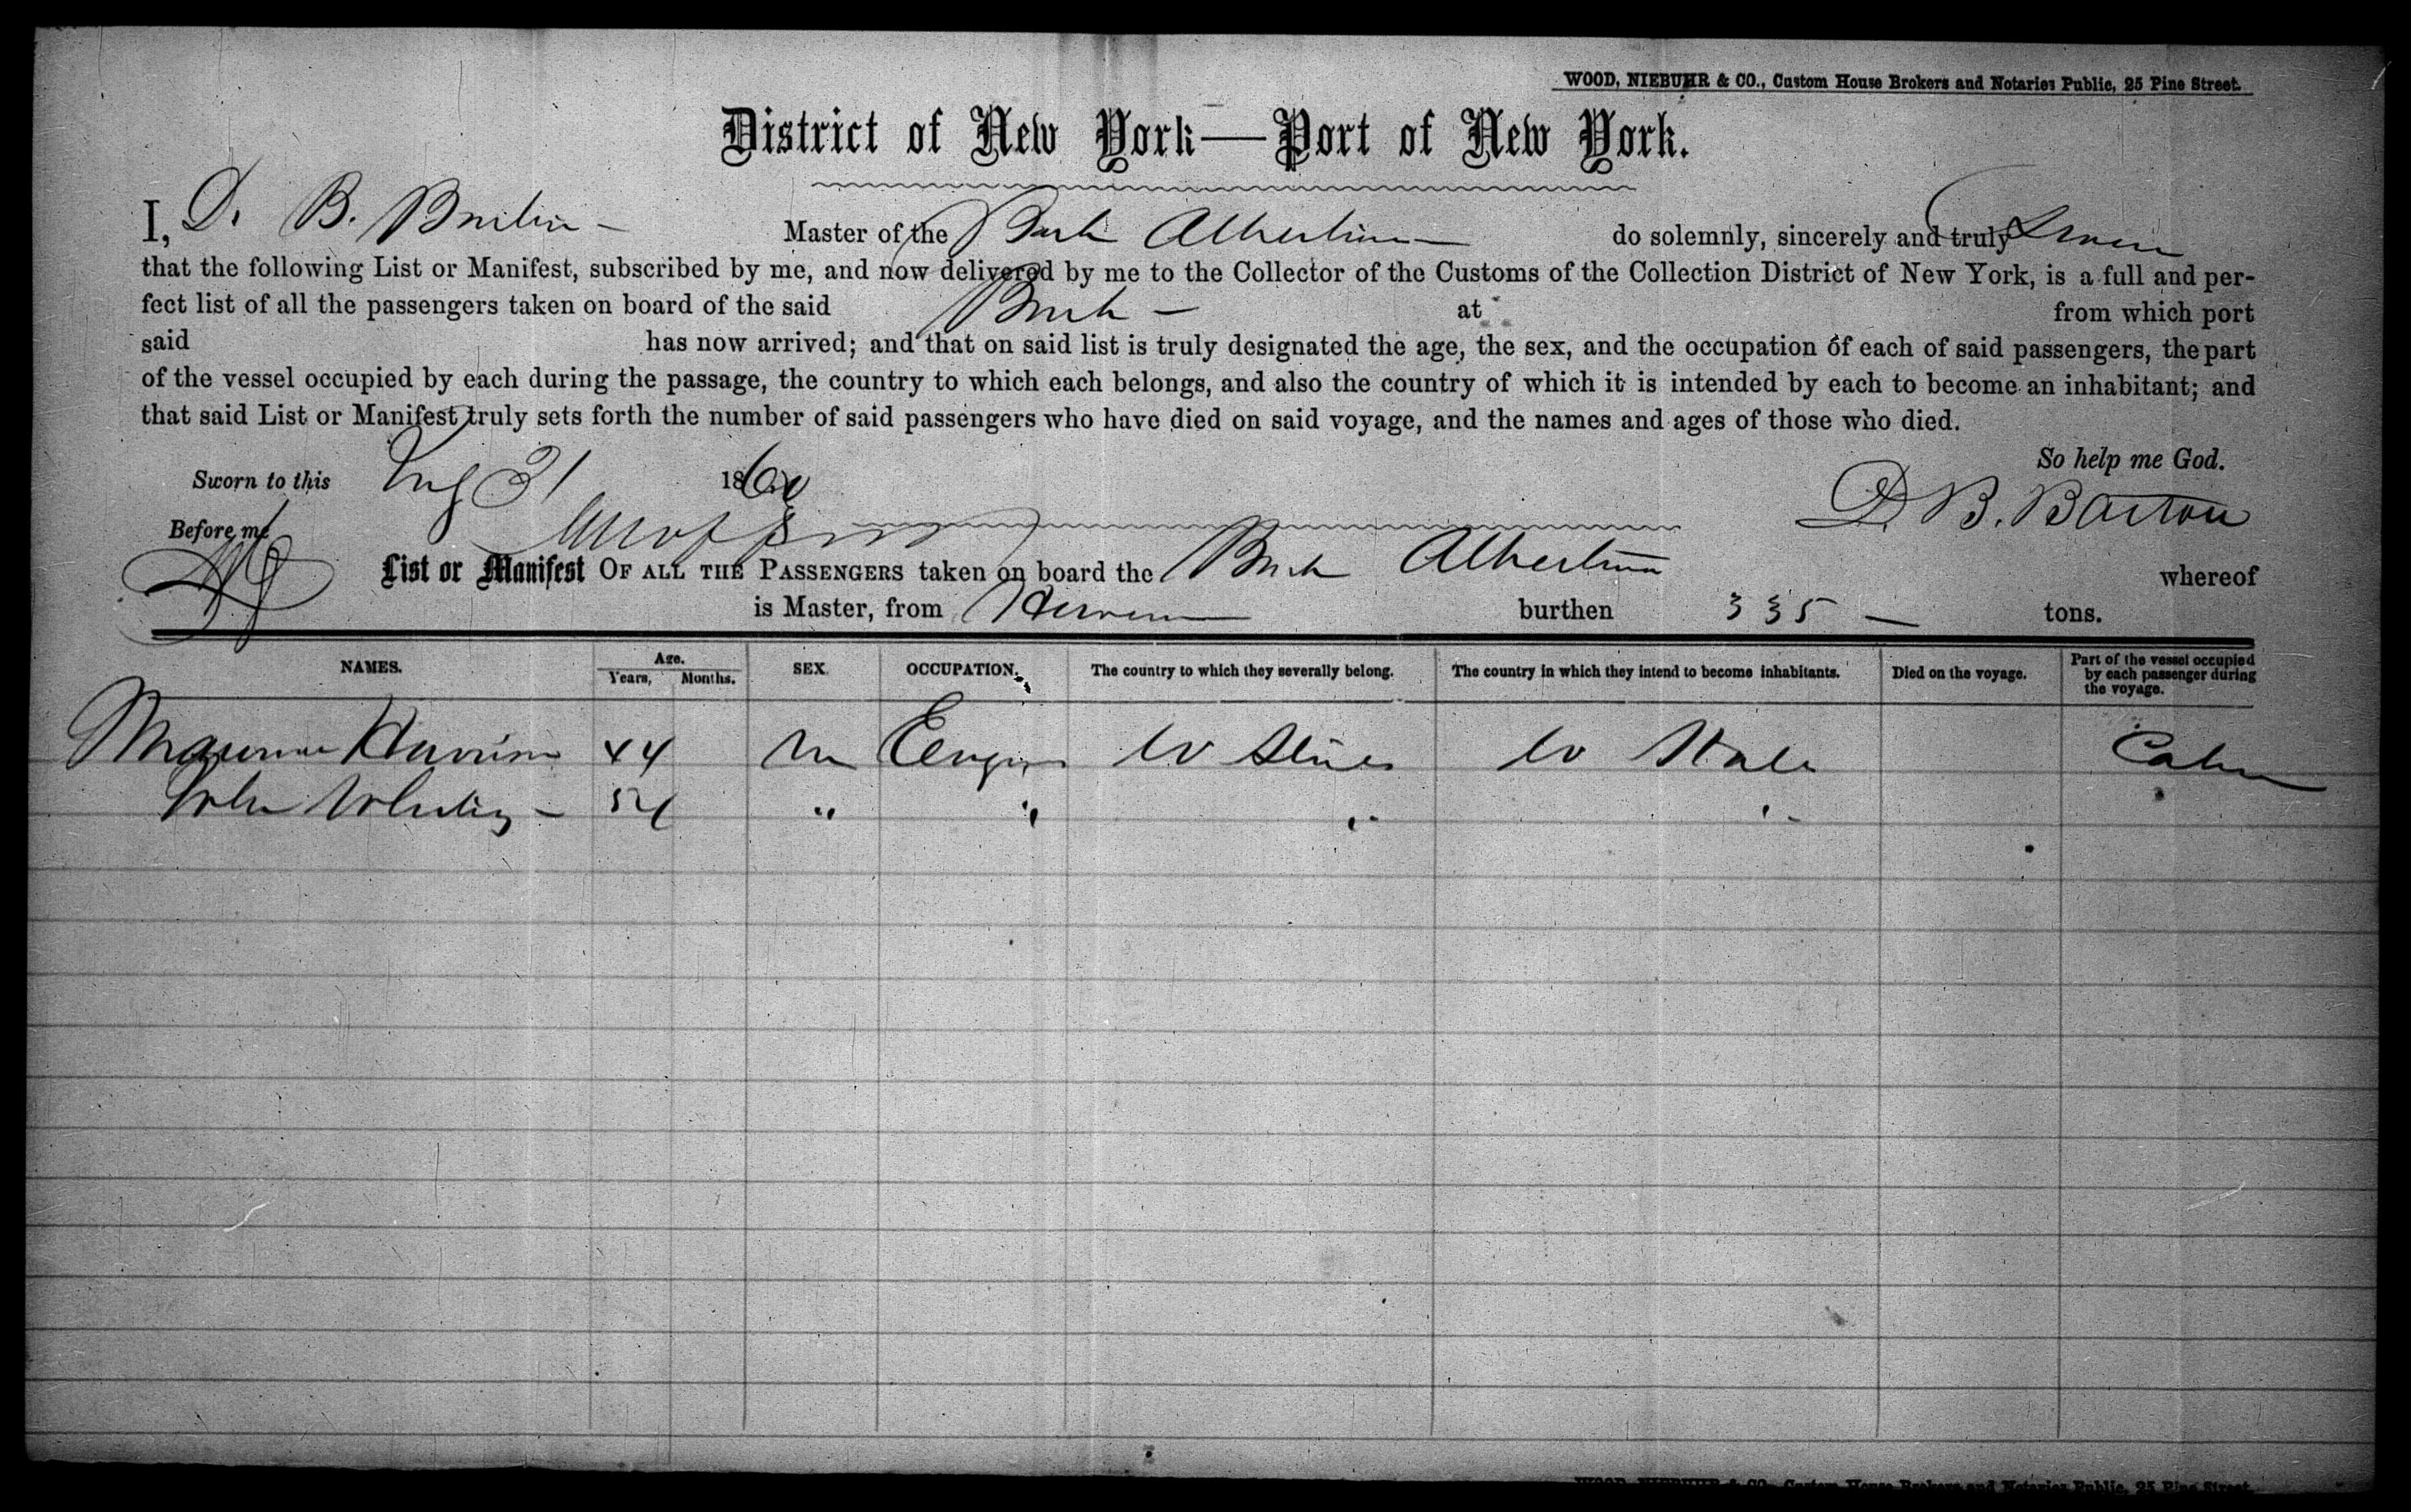 WOOD, NIEBUHR & CO., Custom House Brokers and Notaries Public, 25 Pine Street.
District of New York—Port of New York.
I, D. B. Master of the Bark Albertina do solemnly, sincerely and truly Swear
that the following List or Manifest, subscribed by me, and now delivered by me to the Collector of the Customs of the Collection District of New York, is a full and per-
fect list of all the passengers taken on board of the said Bark at from which port
said has now arrived; and that on said list is truly designated the age, the sex, and the occupation of each of said passengers, the part
of the vessel occupied by each during the passage, the country to which each belongs, and also the country of which it is intended by each to become an inhabitant; and
that said List or Manifest truly sets forth the number of said passengers who have died on said voyage, and the names and ages of those who died.
So help me God.
Sworn to this Aug 31 186
D. B. Barton
Before me
List or Manifest OF ALL THE PASSENGERS taken on board the Bark Albertina whereof
is Master, from burthen 335 — tons.
NAMES. Age. Years, Months. SEX. OCCUPATION. The country to which they severally belong. The country in which they intend to become inhabitants. Died on the voyage. Part of the vessel occupied by each passenger during the voyage.
44 M U States U State Cabin
John 54 " " " "
WOOD, NIEBUHR & CO., Custom House Brokers and Notaries Public, 25 Pine Street.